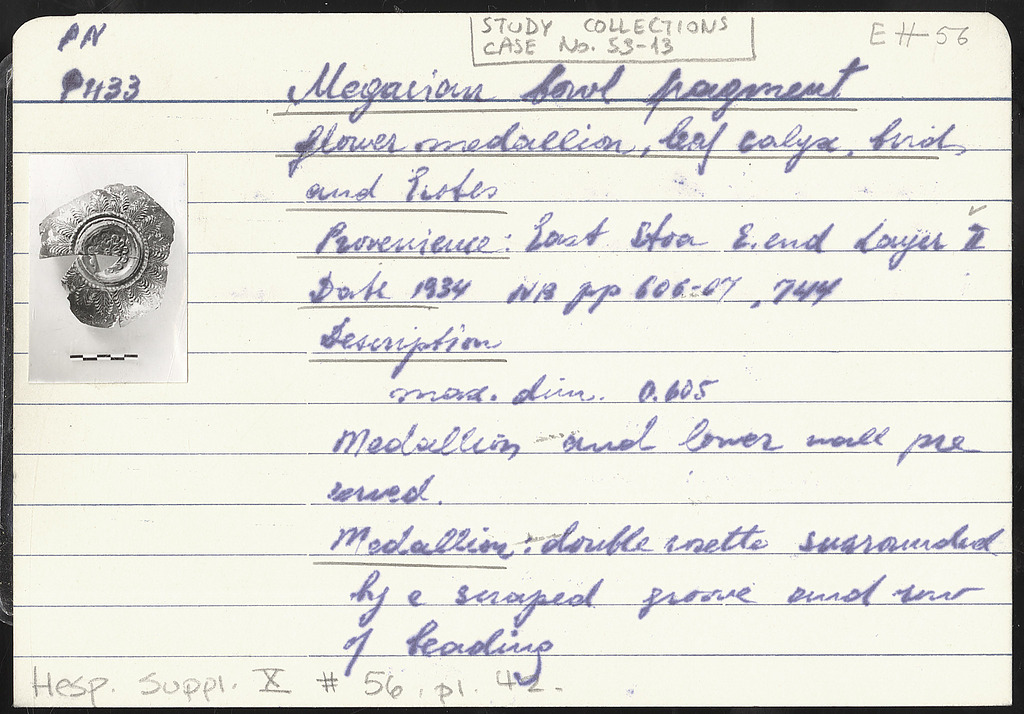 PN
P 1133
STUDY COLLECTIONS
CASE No. 53-13
E # 56
Megarian bowl fragment
flower medallion, leaf calyx, birds
and Erotes
Provenience: East Stoa E. end Layer II
Date 1934 NB pp 606-07, 744
Description
max. dim. 0.605
Medallion and lower wall pre
served.
Medallion: double rosette surrounded
by a scraped groove and row
of beading
Hesp. Suppl. X # 56, pl. 42.